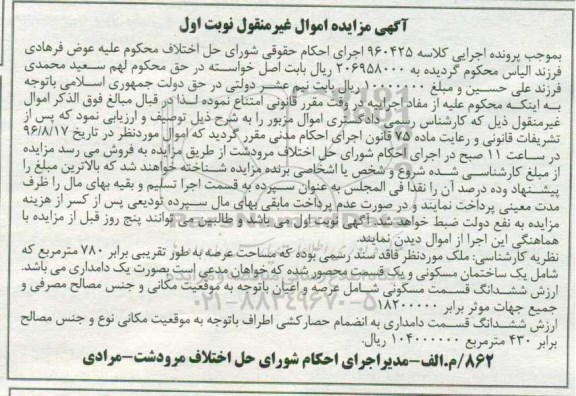 آگهی مزایده اموال غیرمنقول نوبت اول
بموجب پرونده اجرایی کلاسه ۹۶۰۴۲۵ اجرای احکام حقوقی شورای حل اختلاف محکوم علیه عوض فرهادی
فرزند الیاس محکوم گردیده به ۲۰۶۹۵۸۰۰۰ ریال بابت اصل خواسته در حق محکوم لهم سعید محمدی
فرزند علی حسین و مبلغ ریال بابت نیم عشر دولتی در حق دولت جمهوری اسلامی باتوجه
به اینکه محکوم علیه از مفاد اجراییه در وقت مقرر قانونی امتناع نموده لذا در قبال مبالغ فوق الذکر اموال
غیرمنقول ذیل که کارشناس رسمی دادگستری اموال مزبور را به شرح ذیل توصیف و ارزیابی نمود که پس از
تشریفات قانونی و رعایت ماده ۷۵ قانون اجرای احکام مدنی مقرر گردید که اموال موردنظر در تاریخ ۹۶/۸/۱۷
در ساعت ۱۱ صبح در اجرای احکام شورای حل اختلاف مرودشت از طریق مزایده به فروش می رسد مزایده
از مبلغ کارشناسی شده شروع و شخص یا اشخاصی برنده مزایده شناخته خواهند شد که بالاترین مبلغ را
پیشنهاد وده درصد آن را نقدا فی المجلس به عنوان سپرده به قسمت اجرا تسلیم و بقیه بهای مال را ظرف
مدت معینی پرداخت نمایند و در صورت عدم پرداخت مابقی بهای مال سپرده تودیعی پس از کسر از هزینه
مزایده به نفع دولت ضبط خواهد شد آگهی نوبت اول می باشد و طالبین می توانند پنج روز قبل از مزایده با
هماهنگی این اجرا از اموال دیدن نمایند.
نظریه کارشناسی: ملک موردنظر فاقد سند رسمی بوده که مساحت عرصه به طور تقریبی برابر ۷۸۰ مترمربع که
شامل یک ساختمان مسکونی و یک قسمت محصور شده که خواهان مدعی است بصورت یک دامداری می باشد.
ارزش ششدانگ قسمت مسکونی شامل عرصه و اعیان باتوجه به موقعیت مکانی و جنس مصالح مصرفی و
جمیع جهات موثر برابر
ارزش ششدانگ قسمت دامداری به انضمام حصارکشی اطراف باتوجه به موقعیت مکانی نوع و جنس مصالح
برابر ۴۳۰ مترمربع ۱۰۴۰۰۰۰۰۰ ریال.
۸۶۲/م.الف-مدیراجرای احکام شورای حل اختلاف مرودشت-مرادی